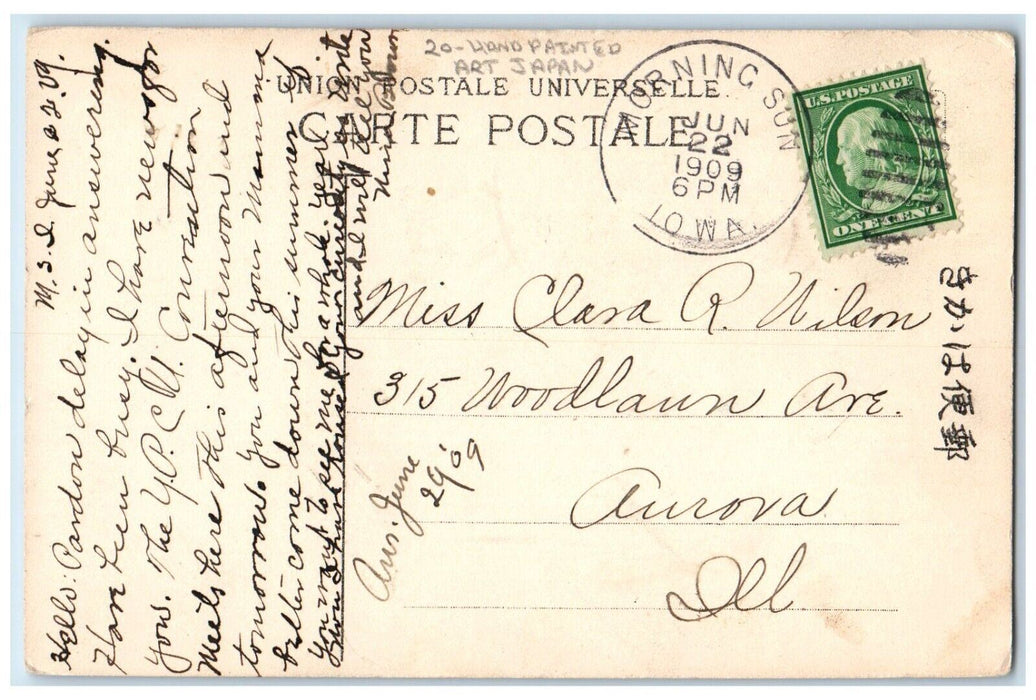 20-HAND PAINTED
ART JAPAN
UNION POSTALE UNIVERSELLE.
CARTE POSTALE
MORNING SUN
JUN
22
1909
6PM
IOWA
U.S. POSTAGE
ONE CENT
きかは便郵
Miss Clara R. Wilson
315 Woodlawn Ave.
Aurora
Ill
Ans. June
29 '09
M. S. I. June 22 '09.
Hello: Pardon delay in answering.
Have been busy. I have news for
you. The Y.P.C.U. Convention
meets here this afternoon and
tomorrow. You and your Mamma
better come down this summer if
you want to see me for a whole year
your curiosity
and I will tell you